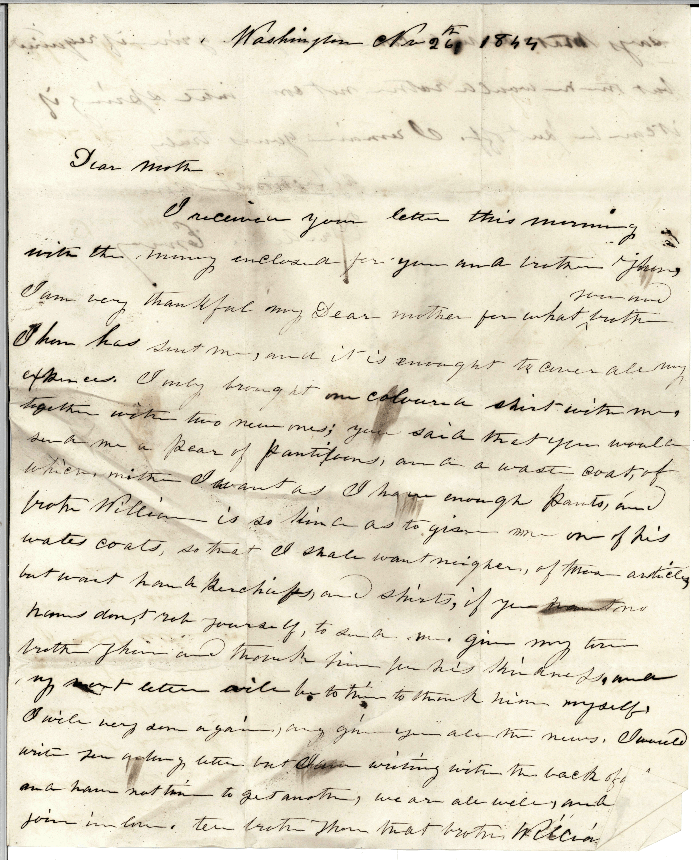 Washington Nov 26th 1844
Dear Moth
I receiven your letter this morning
with the money enclosed for you and broth Jhon,
I am very thankful my Dear mother for what you and broth
Jhon has sent me, and it is enought to cover all my
expences. I only brought one coloured shirt with me,
together with two new ones; you said that you would
send me a pear of pantiloons, and a waste coat, of
which, I want as I have enough pants, and
broth William is so kind as to give me one of his
wates coats, so that I shall want neigher, of those articles,
but want handkerchiefs, and shirts, if you have no
don,t rob yourself, to send me. give my love
broth Jhon and thank him for his kindness, and
my next letter will be to him to thank him myself,
I will very soon again, and give you all the news. I would
write you a long letter but I am writing with the back of a
and have nothin to get another, we are all well, and
join in love. tell broth Jhon that broth William